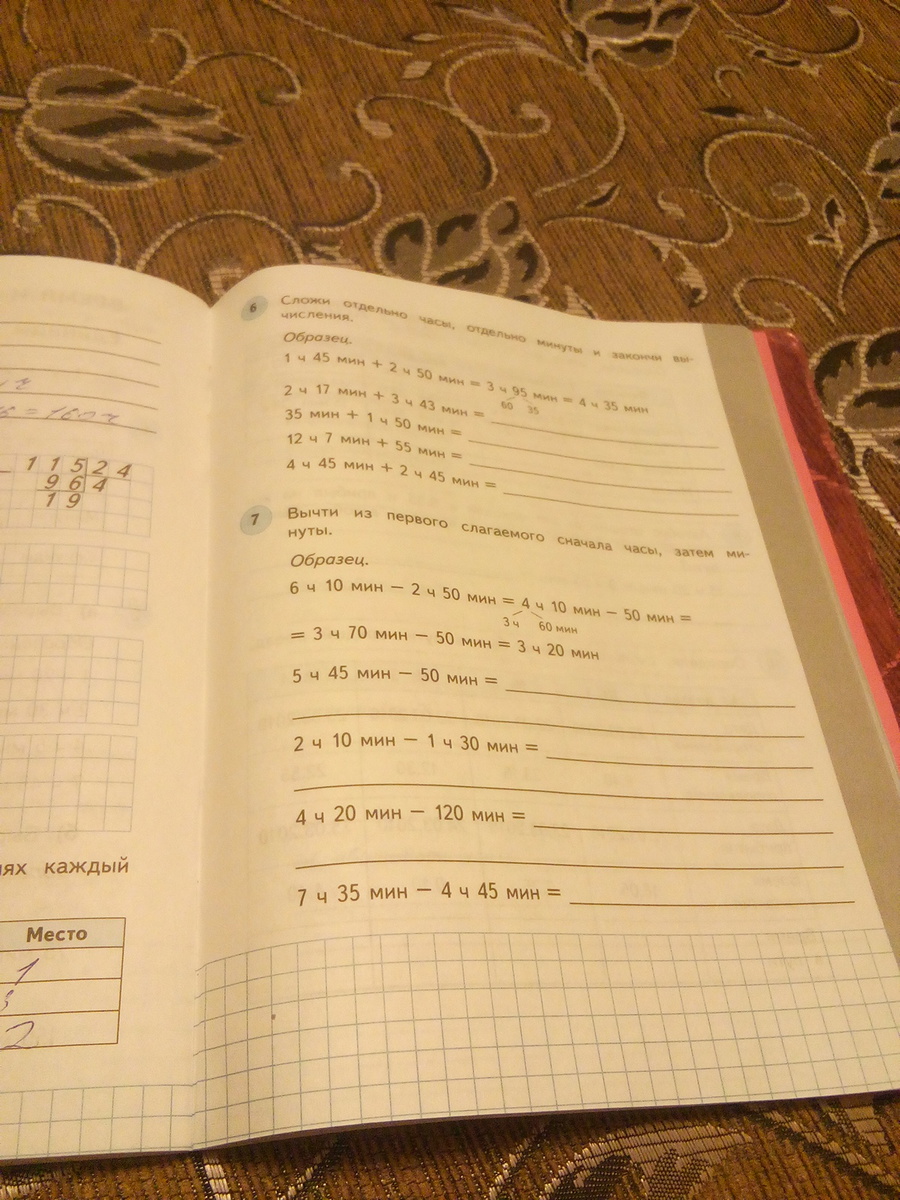 = 160 ч
1 1 5 2 4
9 6 4
1 9
каждый
Место
1
3
2
6 Сложи отдельно часы, отдельно минуты и закончи вы-
числения.
Образец.
1 ч 45 мин + 2 ч 50 мин = 3 ч 95 мин = 4 ч 35 мин
60 35
2 ч 17 мин + 3 ч 43 мин =
35 мин + 1 ч 50 мин =
12 ч 7 мин + 55 мин =
4 ч 45 мин + 2 ч 45 мин =
7 Вычти из первого слагаемого сначала часы, затем ми-
нуты.
Образец.
6 ч 10 мин − 2 ч 50 мин = 4 ч 10 мин − 50 мин =
3 ч 60 мин
= 3 ч 70 мин − 50 мин = 3 ч 20 мин
5 ч 45 мин − 50 мин =
2 ч 10 мин − 1 ч 30 мин =
4 ч 20 мин − 120 мин =
7 ч 35 мин − 4 ч 45 мин =